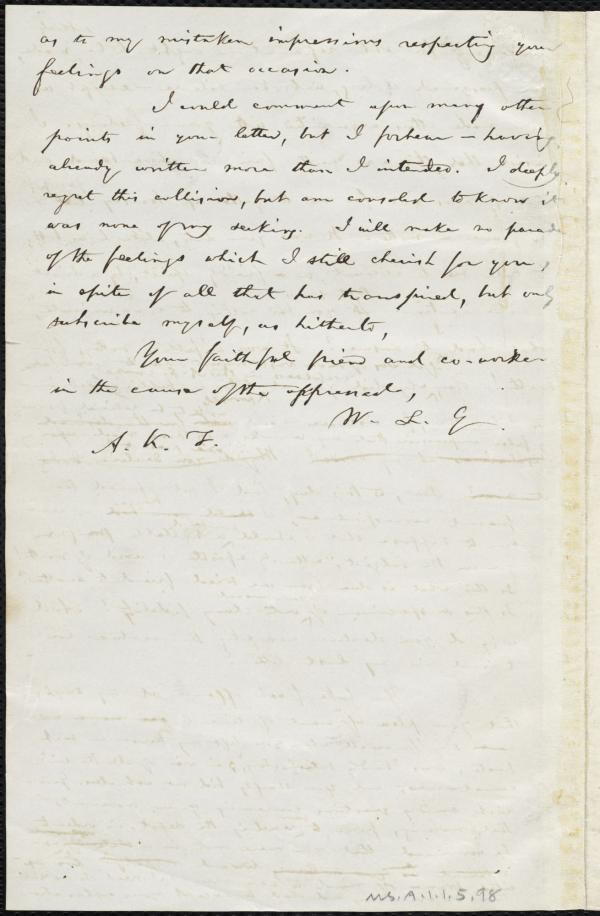 as to my mistaken impressions respecting your
feelings on that occasion.
I could comment upon many other
points in your letter, but I forbear — having
already written more than I intended. I deeply
regret this collision, but am consoled to know it
was none of my seeking. I will make no parade
of the feelings which I still cherish for you,
in spite of all that has transpired, but only
subscribe myself, as hitherto,
Your faithful friend and co-worker
in the cause of the oppressed,
W. L. G.
A. K. F.
MS.A.1.1.5.98